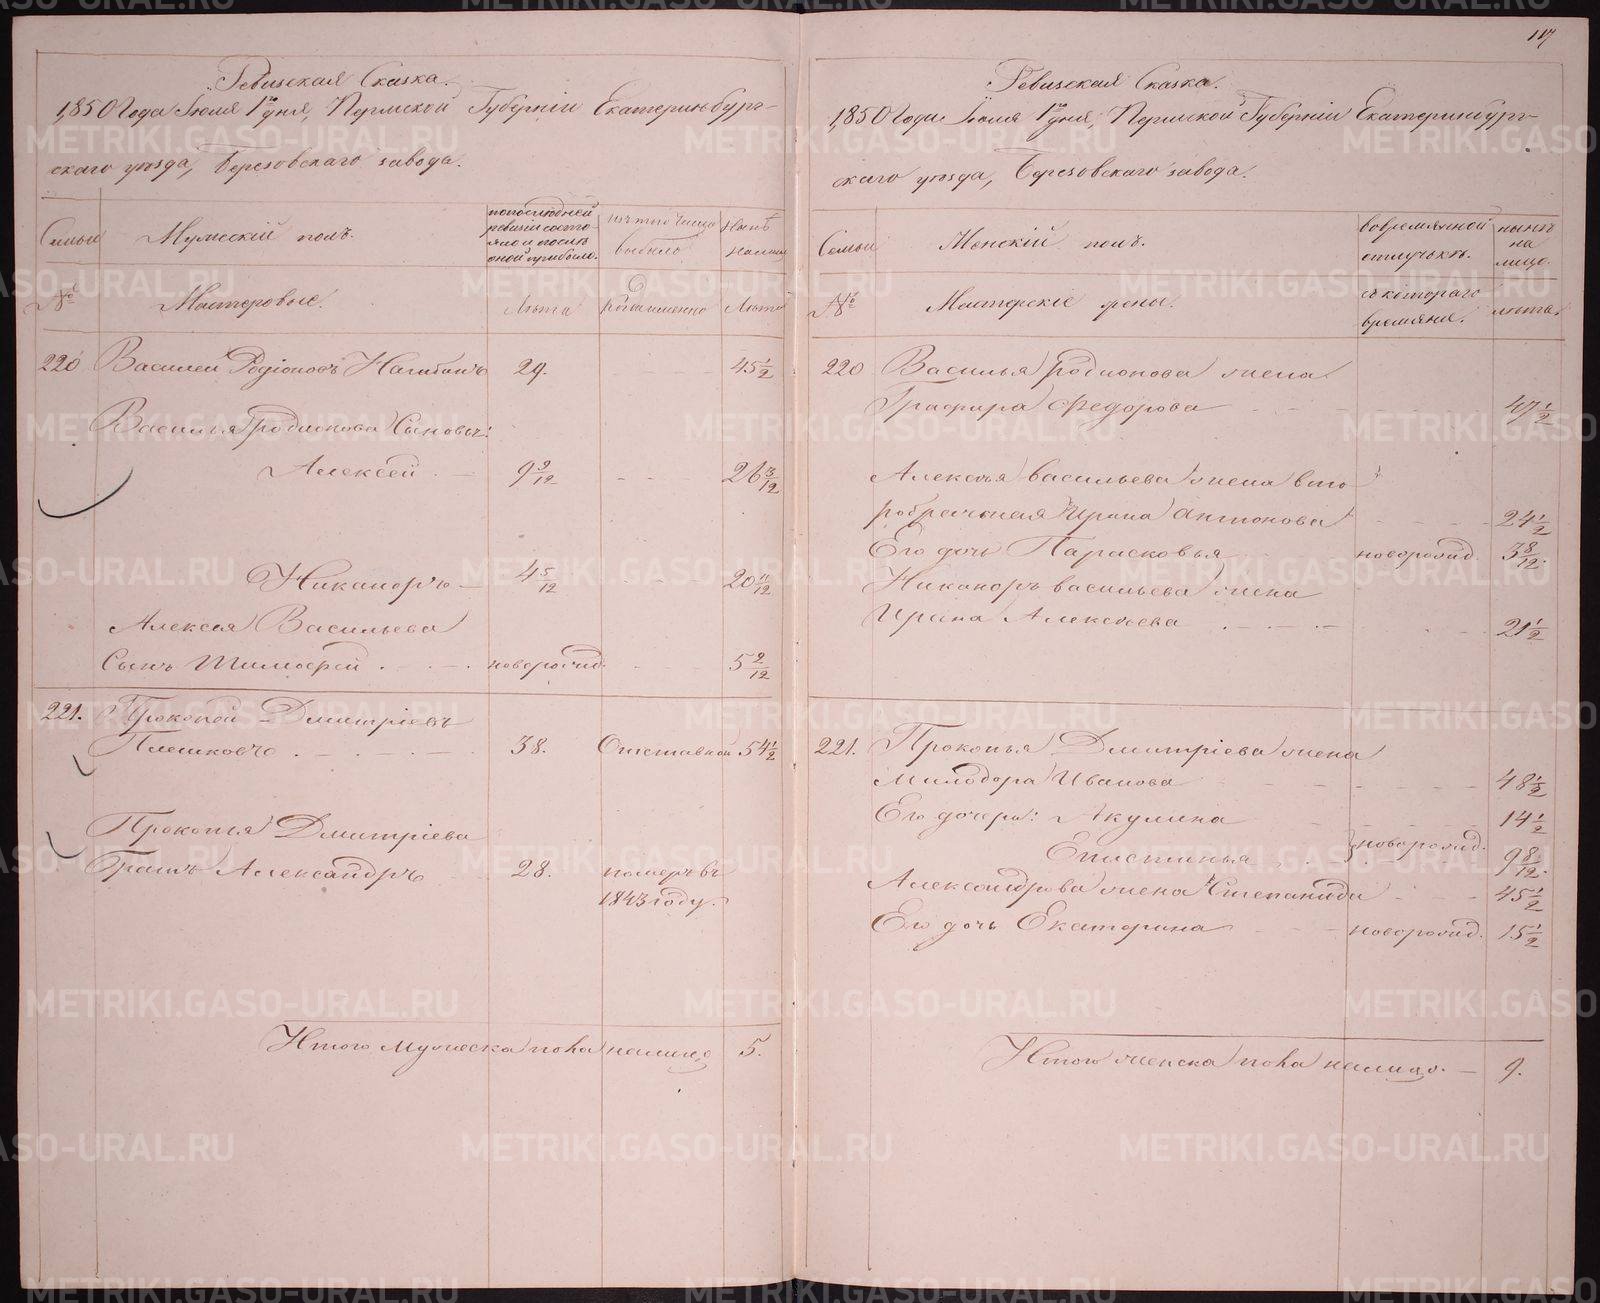 Ревизская Сказка.
1850 Года Июля 1го дня, Пермской Губерніи Екатеринбург-
скаго уѣзда, Березовскаго завода.
Семьи
Мужескій полъ.
по последней ревизіи состояло и после оной прибыло.
изъ того числа выбыло
Нынѣ налицо
№
Мастеровые.
Лѣта
Лѣта
220 Василей Родіоновъ Нагибинъ 29. 45 1/2
Василья Родионова Сыновья:
Алексей 9 9/12 26 3/12
Никаноръ 4 5/12 20 11/12
Алексея Васильева
Сынъ Тимофей новорожд. 5 2/12
221. Прокопей Дмитріевъ
Плешковъ 38. Отставной 54 1/2
Прокопья Дмитріева
Братъ Александръ 28. померъ въ
1843 году.
Итого мужеска пола налицо 5.
117
Ревизская Сказка.
1850 Года Июля 1го дня, Пермской Губерніи Екатеринбург-
скаго уѣзда, Березовскаго завода.
Семьи
Женскій полъ.
во временной отлучкѣ.
нынѣ на лицо.
№
Мастерскіе жены.
съ котораго времяни.
лѣта.
220 Василья Родионова жена
Глафира Федорова 47 1/2
Алексея Васильева жена вто
робрачная Ирина Антонова 24 1/2
Его дочь Парасковья новорожд. 3 8/12.
Никаноръ васильева жена
Ирина Алексеева 21 1/2
221. Прокопья Дмитріева жена
Милодора Иванова 48 1/2
Его дочери: Акулина 14 1/2
новорожд.
Епистинья 9 8/12.
Александрова жена Степанида 45 1/2
Его дочь Екатерина новорожд. 15 1/2
Итого женска пола налицо. 9.
METRIKI.GASO-URAL.RU